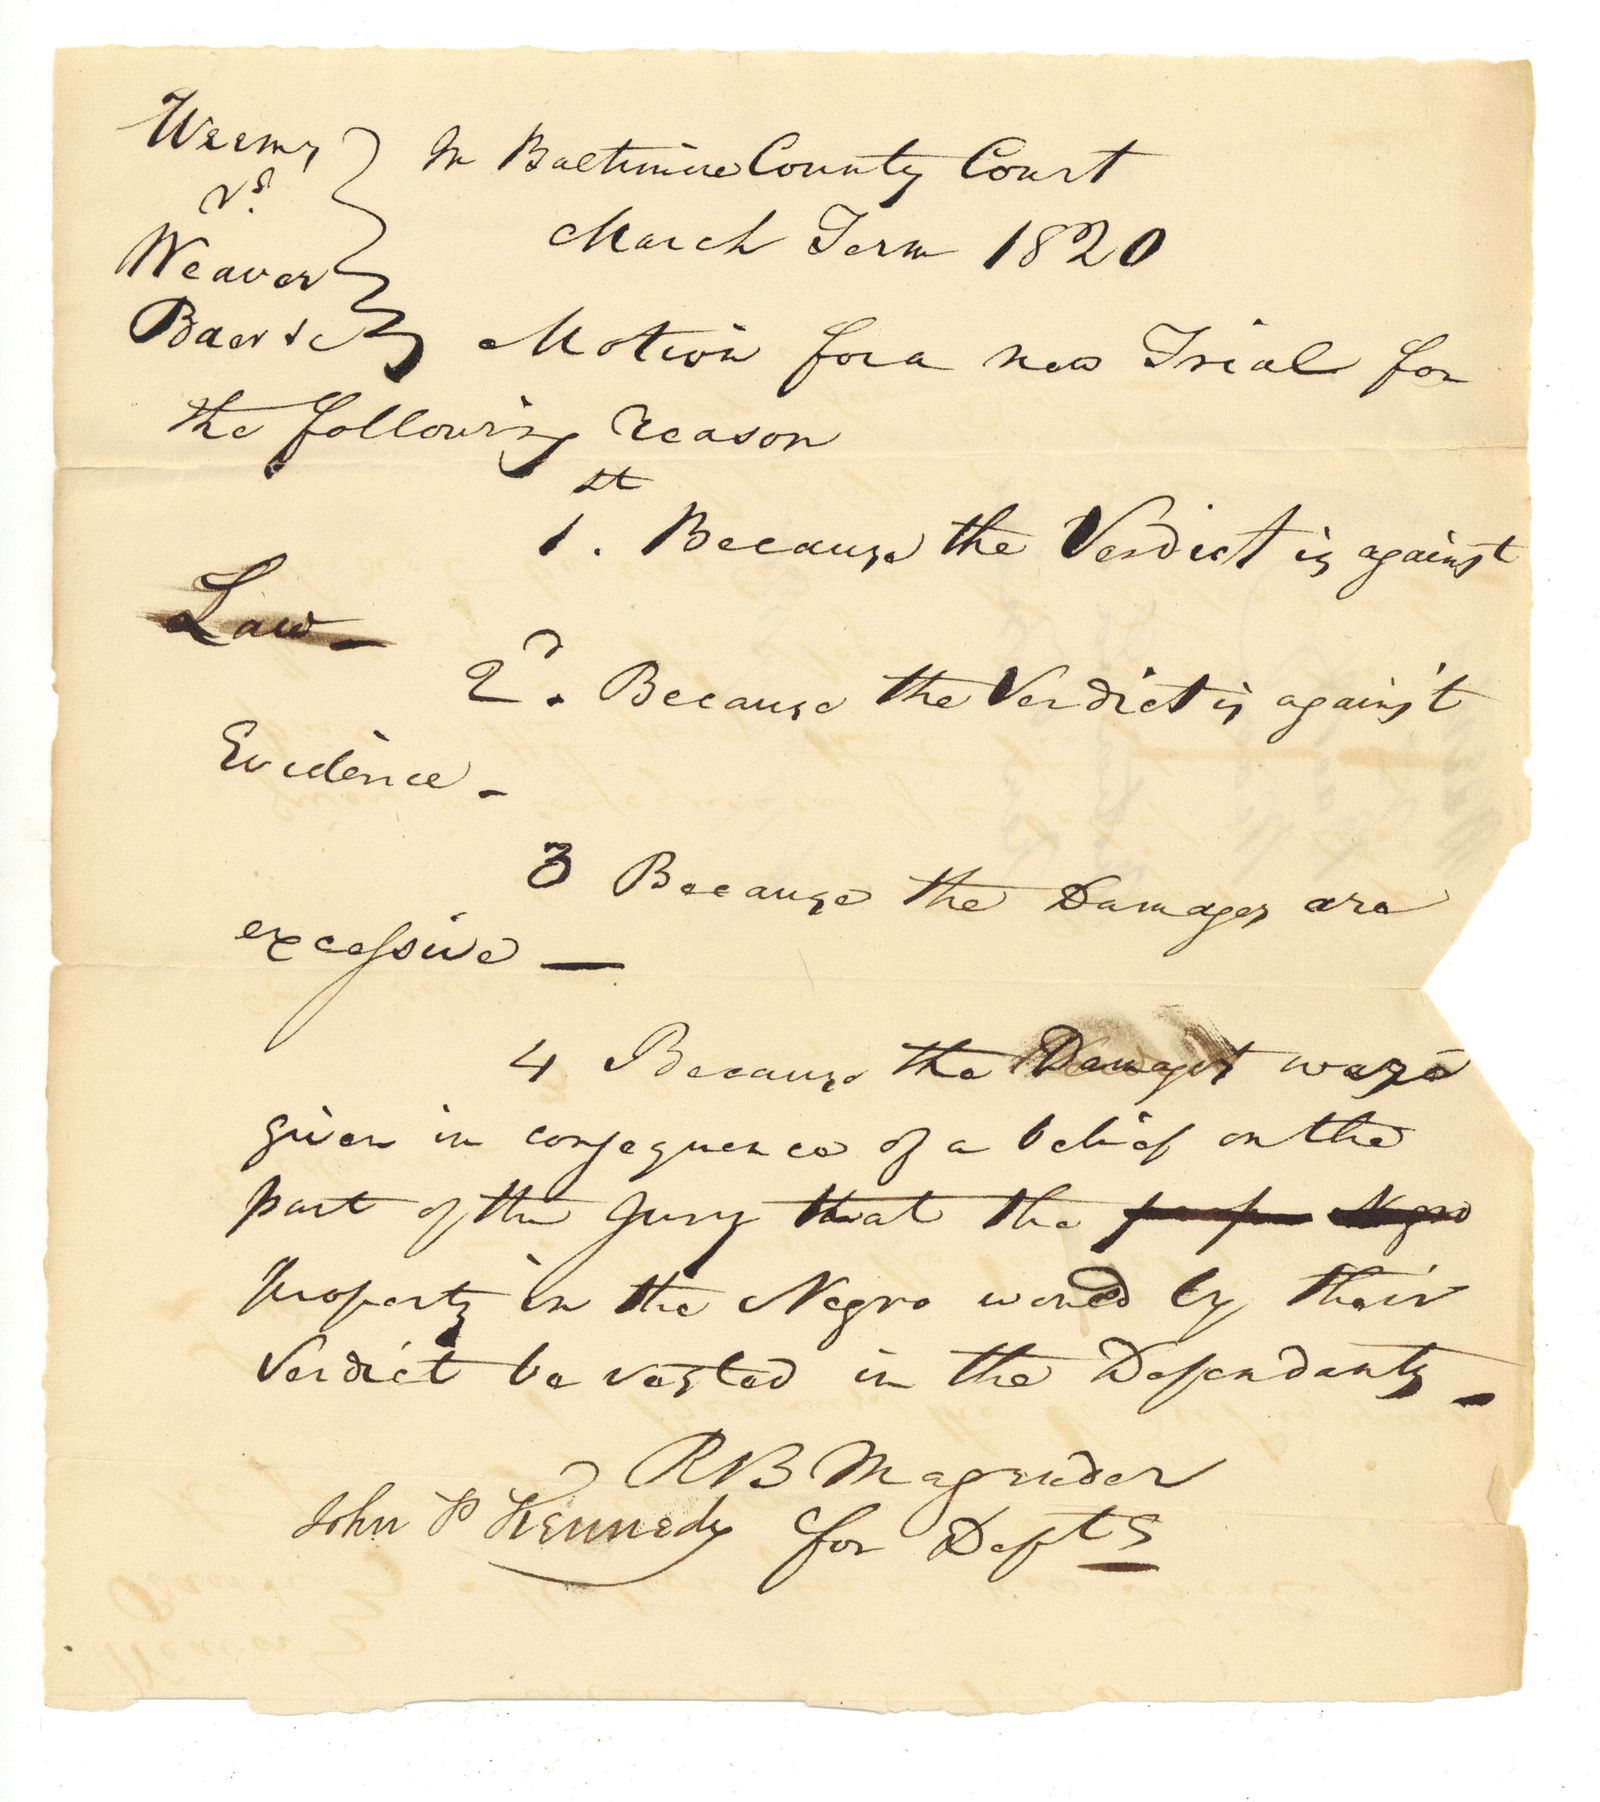 Weems
vs.
Weaver
Baer &c
In Baltimore County Court
March Term 1820
Motion for a new Trial for
the following reason
1st. Because the Verdict is against
Law -
2d. Because the Verdict is against
Evidence -
3 Because the Damages are
excessive —
4 Because the Damages were
given in consequence of a belief on the
part of the Jury that the Negro
Property in the Negro would by their
Verdict be vested in the Defendants -
R B Magruder
John P Kennedy for Defts